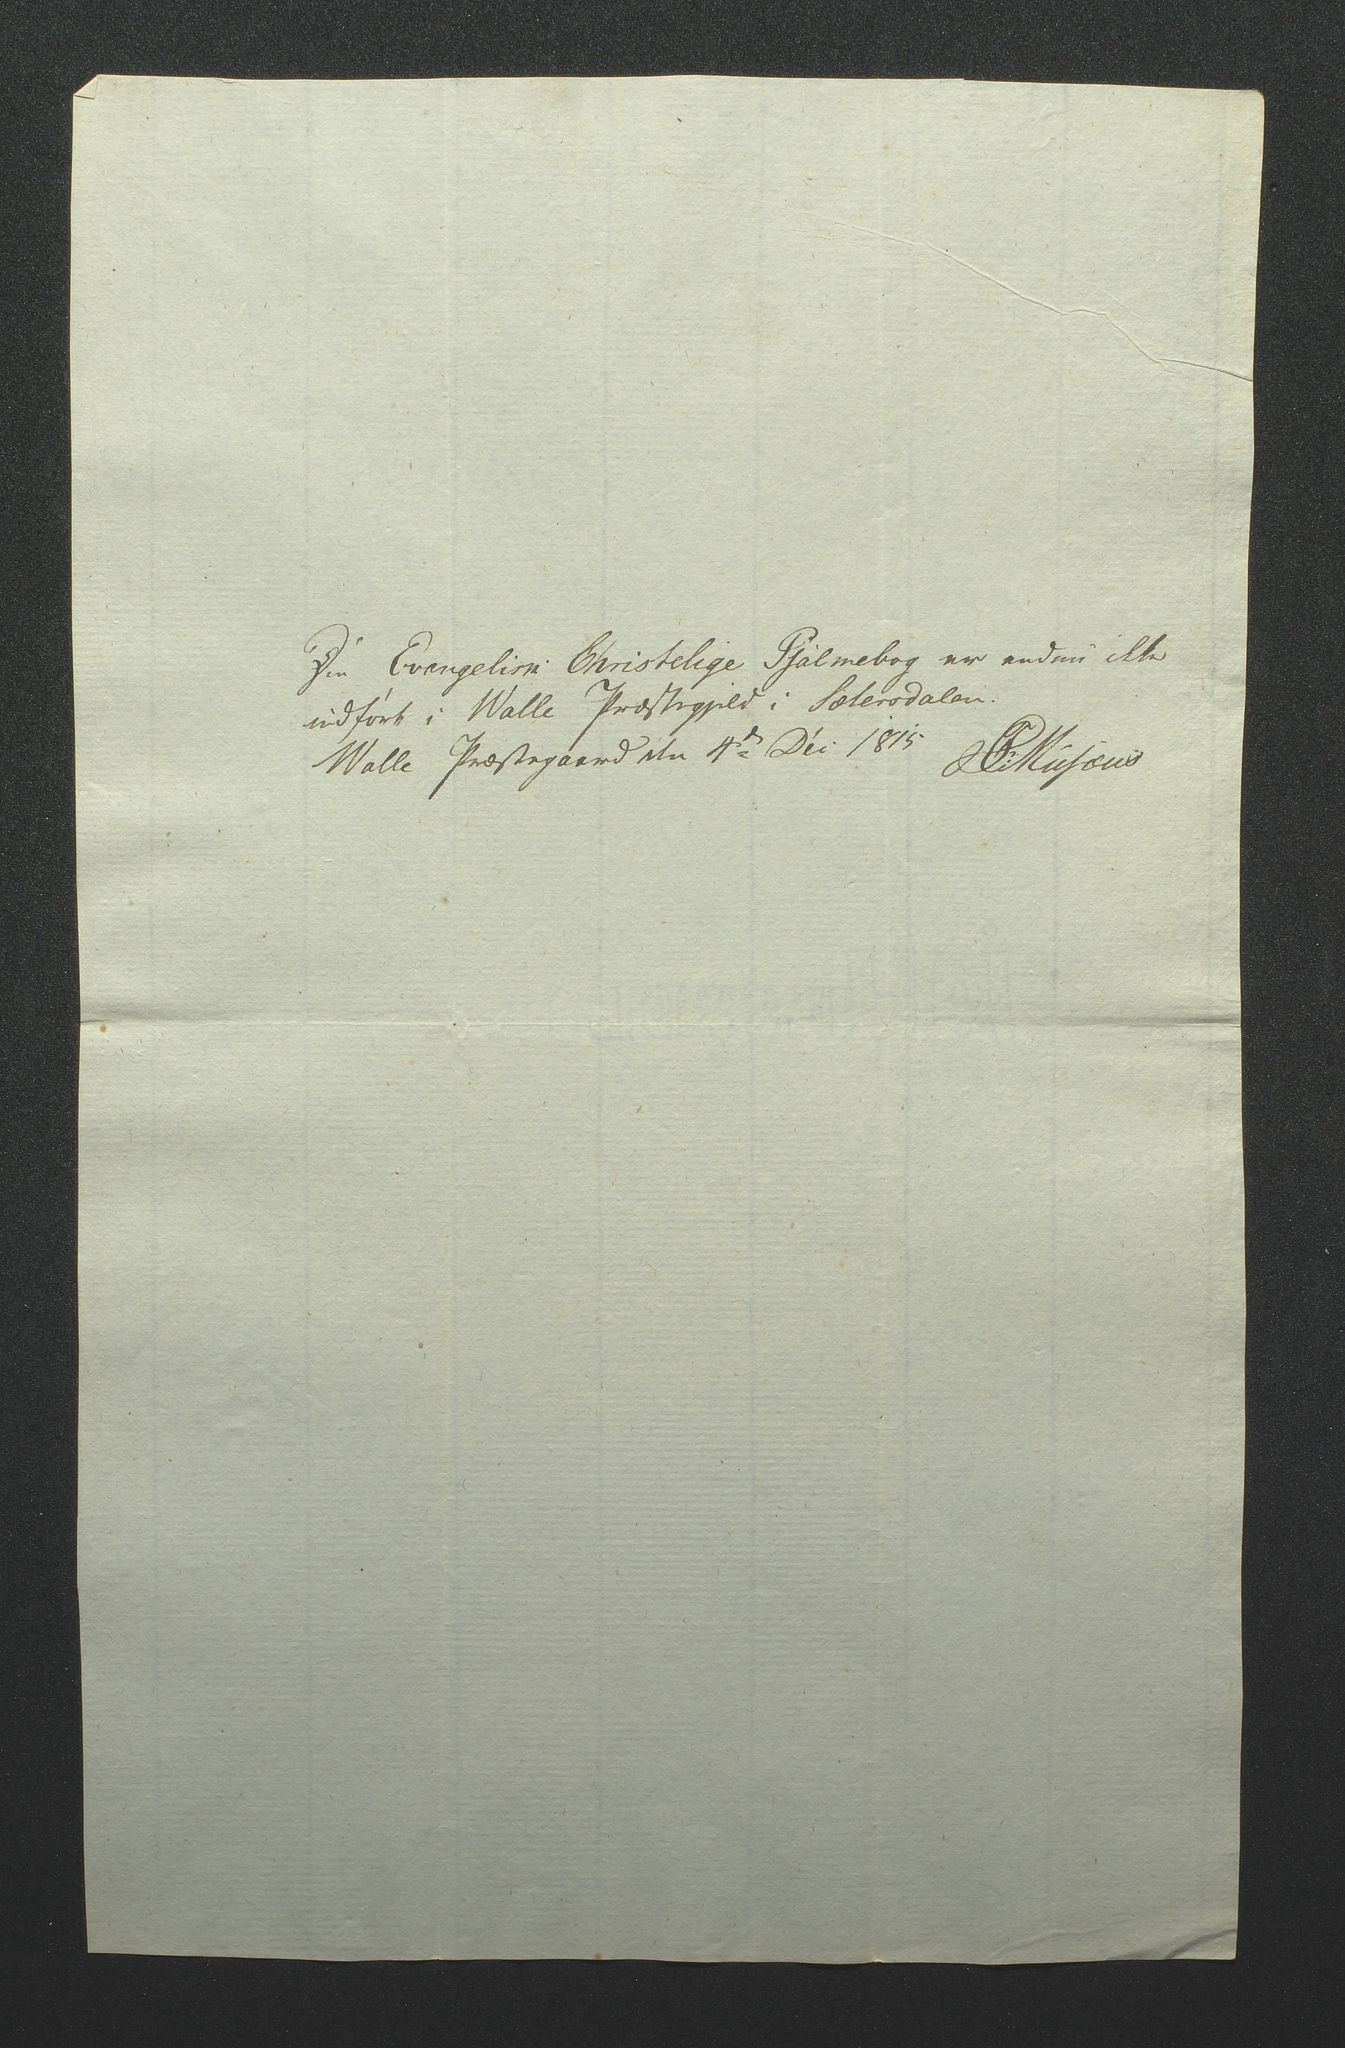 Den Evangelisk Christelige Psalmebog er endnu ikke
indført i Walle Præstegjeld i Sætersdalen.
Walle Præstegaard den 4de Dec: 1815 Musæus